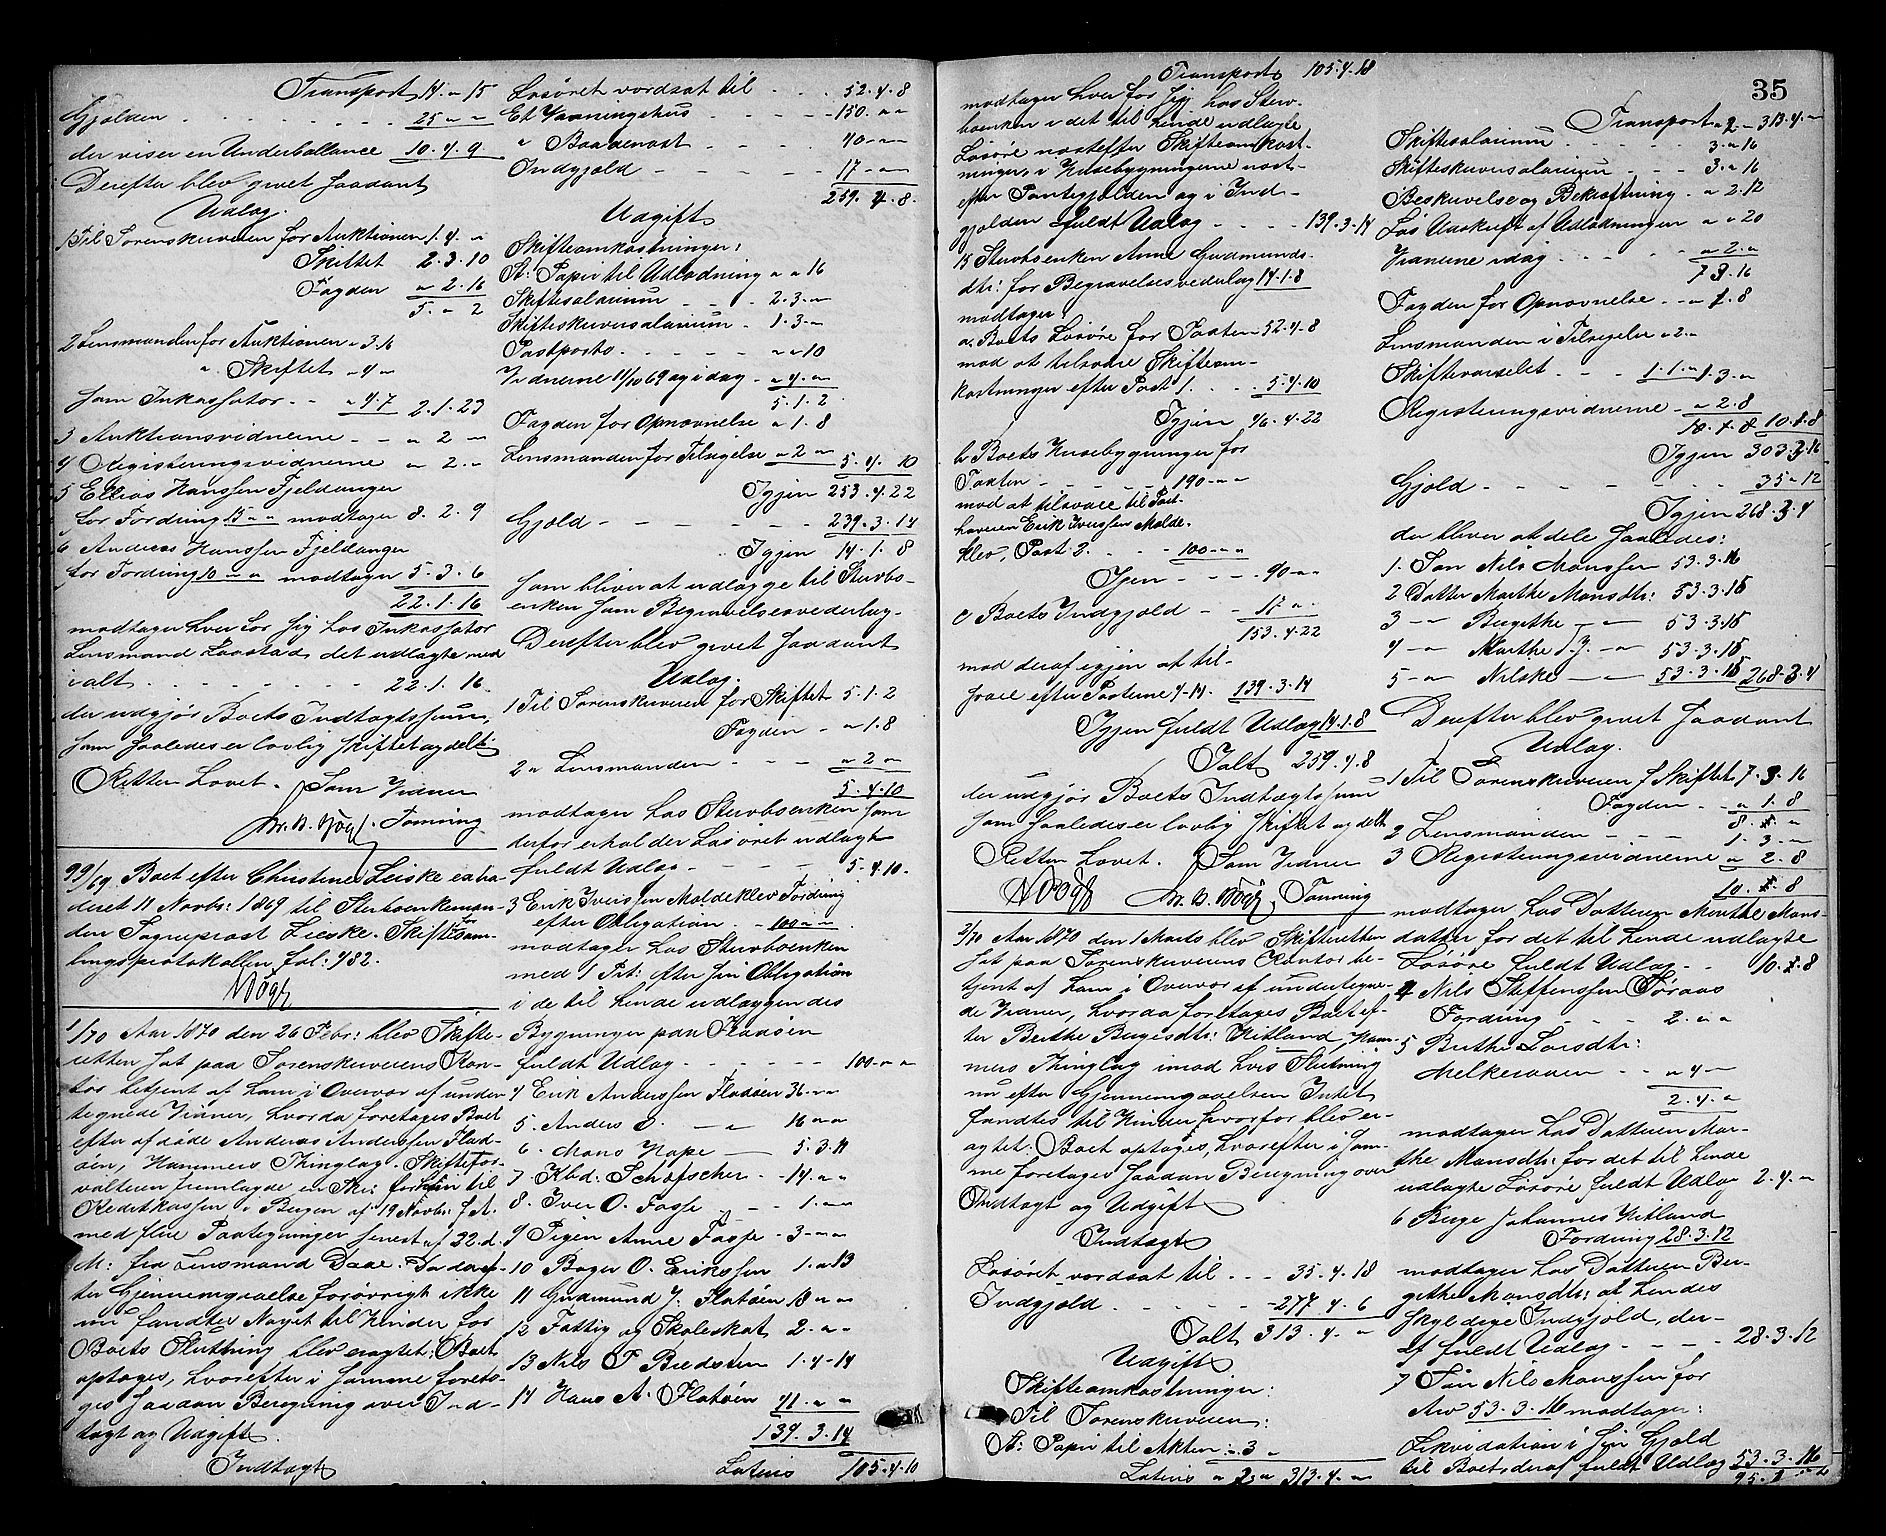 Transport 14 " 15
Gjælden . . . . . . . . 25 " "
der viser en Underballance 10.4.9
Derefter blev givet saadant
Udlæg.
1 Til Sorenskriveren for Auktionen 1.4. "
Skiftet 2.3.10
Fogden " 2.16
5. " 2
2 Lensmanden for Auktionen " 3.16
" Skiftet " 4 "
som Inkassator . . " 4.7 2.1.23
3 Auktionsvidnerne - - " 2 "
4 Registeringsvidnerne " 2. "
5 Ellias Hanssen Fjeldanger
for Fordring 15 " " modtager 8.2.9
6 Andreas Hanssen Fjeldanger
for Fordring 10 " " modtager 5.3.6
22.1.16
modtager hver for sig hos Inkassator
Lensmand Laastad det udlagte med
ialt . . . . . . . 22.1.16.
der udgjør Boets Indtægtssum,
som saaledes er lovlig skiftet og delt.
Retten hævet. Som Vidner
Chr. B. Vogt. Tønning
99/69. Boet efter Christine Leiske extra-
deret 11 Novbr: 1869 til Sterboenkeman-
den Sogneprost Leiske. Skiftesam-
lingsprotokollen fol: 482.
NVogt
1/70 Aar 1870 den 26 Febr: blev Skifte-
retten sat paa Sorenskriverens Kon-
tor betjent af ham i Overvær af under-
tegnede Vidner, hvorda foretoges Boet
efter afdøde Andreas Anderssen Flad-
øen, Hammers Thinglag. Skiftefor-
valteren fremlagde en Skr: forhen til
Kreditkassen i Bergen af 19 Novbr: f. A.
med flere Paategninger senest af 22. d.
M: fra Lensmand Daae. Da der ef-
ter Gjennemgaaelse forøvrigt ikke
nu fandtes Noget til Hinder for
Boets Slutning blev eragtet: Boet
optages, hvorefter i samme foreto-
ges saadan Beregning over Ind-
tægt og Udgift.
Indtægt
Løsøret vordsat til - - - 52.4.8
Et Vaaningshus - - - - 150. " "
" Baadenøst - - - - 40 " "
Indgjæld - - - - - 17 " "
259.4.8.
Udgift
Skifteomkostninger:
St: Papir til Udlodning " " 16
Skiftesalarium - - - 2.3. "
Skifteskriversalarium - 1.3. "
Postporto . . . . . " " 10
Vidnerne 11/10 69 og idag - " 4. "
5.1.2.
Fogden for Opnævnelse " 1.8
Lensmanden for Tilsigelse " 2 " 5.4.10
Igjen 253.4.22
Gjæld - - - - - - 239.3.14
Igjen 14.1.8
som bliver at udlægge til Stervbo-
enken som Begravelsesvederlag.
Derefter blev givet saadant
Udlæg.
1 Til Sorenskriveren for Skiftet 5.1.2
Fogden - " 1.8
2 " Lensmanden - - - " 2 "
5.4.10
modtager hos Stervboenken som
derfor erholder Løsøret udlagt
fuldt Udlæg - - - - 5.4.10.
3 Erik Iverssen Moldeklev Fordring
efter Obligation - 100 " "
modtager hos Stervboenken
med 1 Prt: efter sin Obligation
i de til hende udlæggendes
Bygninger paa Fladøen
fuldt Udlæg - - - - 100 " "
4 Erik Anderssen Fladøen 36 " "
5. Anders O. - " 16 " "
6. Mons Hope - 5.3.11
7 Kbd: Schøfscher - 14. " "
8. Iver O. Fosse - - 1. " "
9 Pigen Anne Fosse - 3 " "
10 Roger O. Erikssen 1. " 13
11 Gudmund J. Flatøen 18 " "
12 Fattig og Skoleskat 2. " "
13 Nils P Bredsten 1.4.14
14 Hans A. Flatøen 41. " "
139.3.14
Lateris 105.4.10
35
Transport 105.4.18
modtager hver for sig hos Sterv-
boenken i det til hende udlagte
Løsøre næstefter Skifteomkost-
ninger, i Husebygningerne næst-
efter Pantegjælden og i Ind-
gjælden fuldt Udlæg - - - - 139.3.14
15 Stervboenken Anne Gudmunds-
dtr: for Begravelsesvederlag 14.1.8
modtager:
a. Boets Løsøre for Taxten 52.4.8
mod at tilsvare Skifteom-
kostninger efter Post 1. . . . 5.4.10
Igjen 46.4.22
b. Boets Husebygninger for
Taxten - - - - 190 " "
mod at tilsvare til Pant-
haveren Erik Iverssen Molde-
klev, Post 3. . . . 100 " "
Igjen - - - 90 " "
c Boets Indgjæld - - 17 " .
153.4.22
mod deraf igjen at til-
svare efter Posterne 4-14. 139.3.14
Igjen fuldt Udlæg 14.1.8
Ialt 259.4.8
der udgjør Boets Indtægtssum
som saaledes er lovlig skiftet og delt
Retten hævet. Som Vidner
NVogt Chr. B. Vogt, Tønning
2/70 Aar 1870 den 1 Marts blev Skifteretten
sat paa Sorenskriverens Kontor be-
tjent af ham i Overvær af undertegne-
de Vidner, hvorda foretoges Boet ef-
ter Berthe Børgesdtr: Hitland, Ham-
mers Thinglag imod hvis Slutning
nu efter Gjennemgaaelsen Intet
fandtes til Hinder hvorfor blev er-
agtet: Boet optages, hvorefter i sam-
me foretoges saadan Beregning over
Indtægt og Udgift
Indtægt
Løsøret vordsat til - - - 35.4.18
Indgjæld - - - - - 277.4.6
Ialt 313.4. "
Udgift
Skifteomkostninger:
Til Sorenskriveren:
St: Papir til Akten - 3 "
Lateris " 2 " 313.4. "
Transport " 2 - 313.4. "
Skiftesalarium - - - - 3. " 16
Skifteskriversalarium - - - 3. " 16
Beskrivelse og Bekræftning - " 2.12
Løs Udskrift af Udlodningen " " 20
Vidnerne idag . . . . " 2. "
7.3.16
Fogden for Opnævnelse - - " 1.8
Lensmanden i Tilsigelse " 2 "
Skiftevarselet - - - 1.1. " 1.3. "
Registeringsvidnerne - " 2.8
10.1.8 10.1.8
Igjen 303.2.16
Gjæld - - - - - - - 35 " 12
Igjen 268.2.4
der bliver at dele saaledes:
1. Søn Nils Monssen 53.3.16
2 Datter Marthe Monsdtr: 53.3.15
3 - " Brigithe - " 53.3.15
4 - " Marthe d. y. - " 53.3.15
5 - " Nilske - " 53.3.15 268.2.4
Derefter blev givet saadant
Udlæg.
1 Til Sorenskriveren f Skiftet 7.3.16
Fogden - - " 1.8
8. " "
2 Lensmanden - - - 1.3. "
3 Registeringsvidnerne " 2.8
10.1.8
modtager hos Datteren Marthe Mons-
datter for det til hende udlagte
Løsøre fuldt Udlæg - - 10.1.8
4 Nils Steffenssen Toraas
Fordring - - - 2. " "
5 Brithe Larsdtr:
Melkeraaen - - " 4 "
2.4. "
modtager hos Datteren Mar-
the Monsdtr: for det til hende
udlagte Løsøre fuldt Udlæg 2.4. "
6 Børge Johannes Hitland
Fordring 28.3.12
modtager hos Datteren Bri-
githe Monsdtr: af hendes
skyldige Indgjæld, der-
af fuldt Udlæg - - - - 28.3.12
7 Søn Nils Monssen for
Arv 53.3.16 modtager:
Likvidation i sin Gjæld
til Boet, deraf fuldt Udlæg 53.3.16